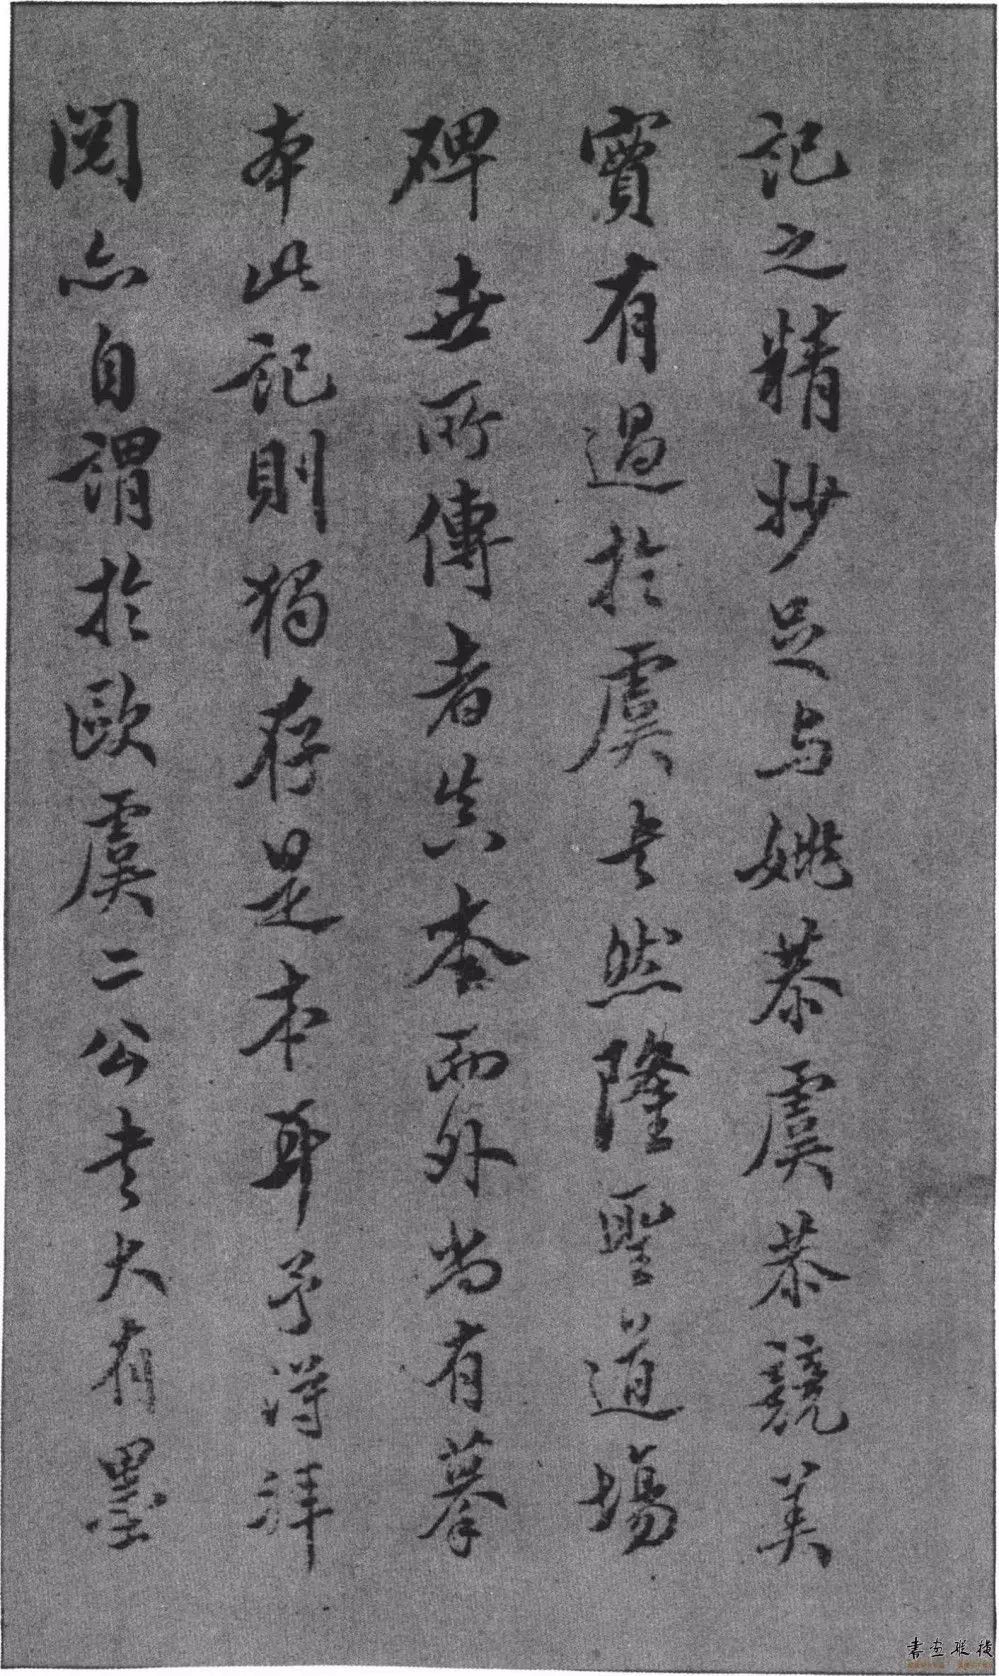 記之精妙足与姚恭虞恭競美
實有過於虞者然隆聖道場
碑世所傳者真本而外尚有摹
本此記則獨存是本耳予得詳
閱亦自謂於歐虞二公者大有墨